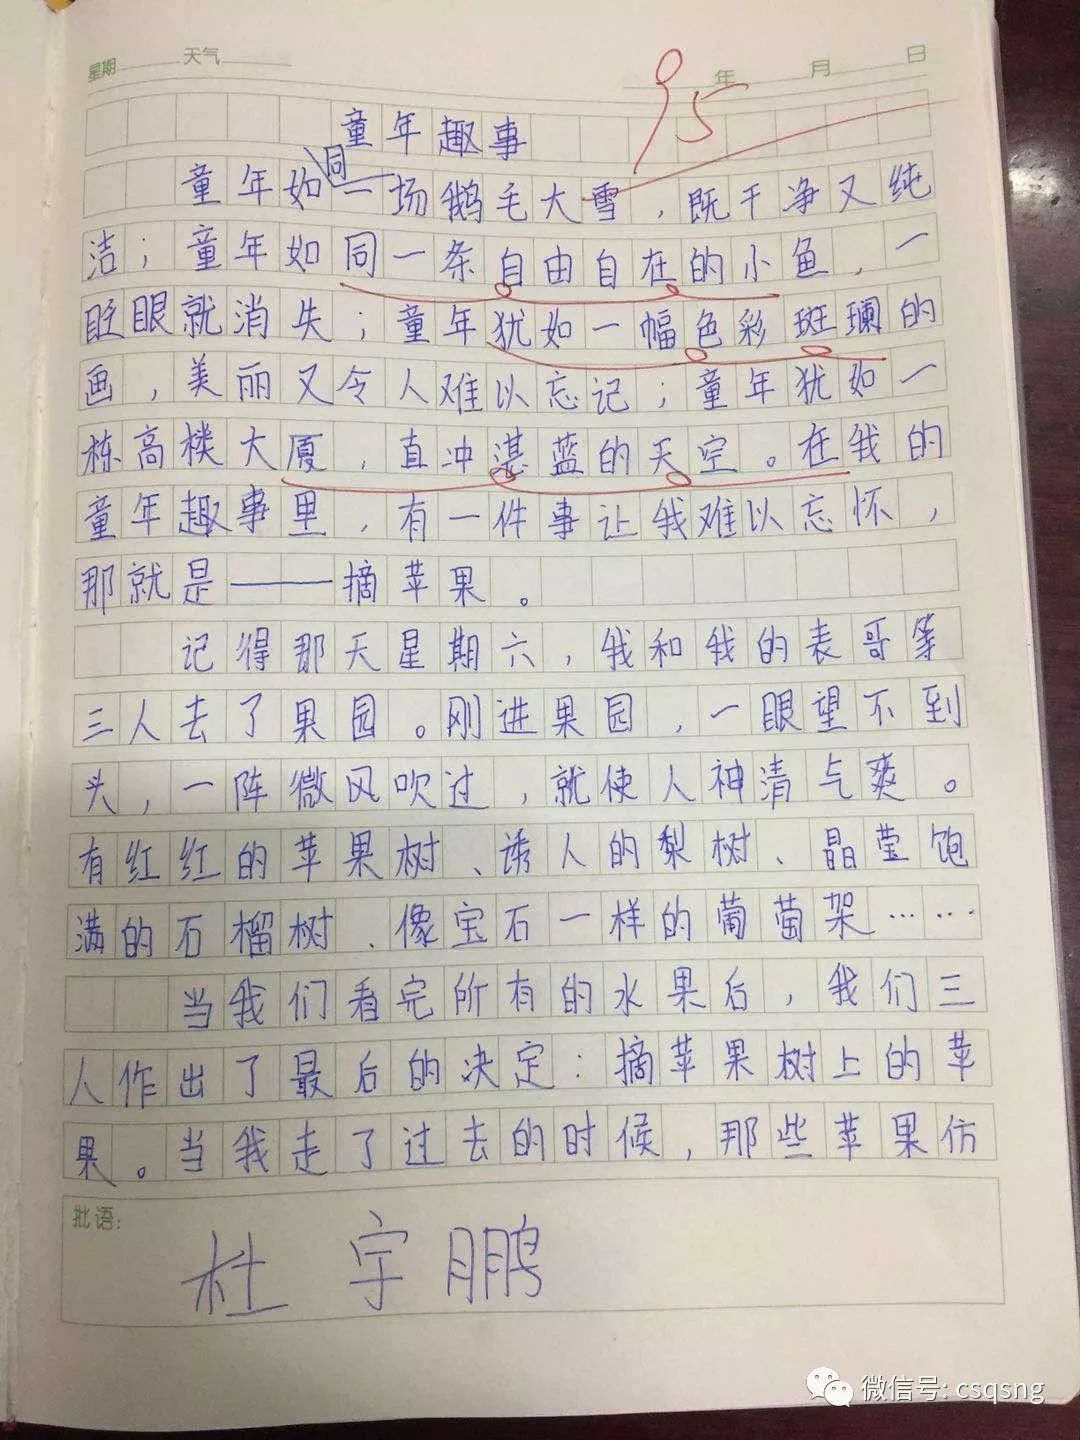 星期 天气 年 月 日
95
童年趣事
童年如同一场鹅毛大雪，既干净又纯
洁；童年如同一条自由自在的小鱼，一
眨眼就消失；童年犹如一幅色彩斑斓的
画，美丽又令人难以忘记；童年犹如一
栋高楼大厦，直冲湛蓝的天空。在我的
童年趣事里，有一件事让我难以忘怀，
那就是——摘苹果。
记得那天星期六，我和我的表哥等
三人去了果园。刚进果园，一眼望不到
头，一阵微风吹过，就使人神清气爽。
有红红的苹果树、诱人的梨树、晶莹饱
满的石榴树、像宝石一样的葡萄架……
当我们看完所有的水果后，我们三
人作出了最后的决定：摘苹果树上的苹
果。当我走了过去的时候，那些苹果仿
批语：
杜宇鹏
微信号: csqsng